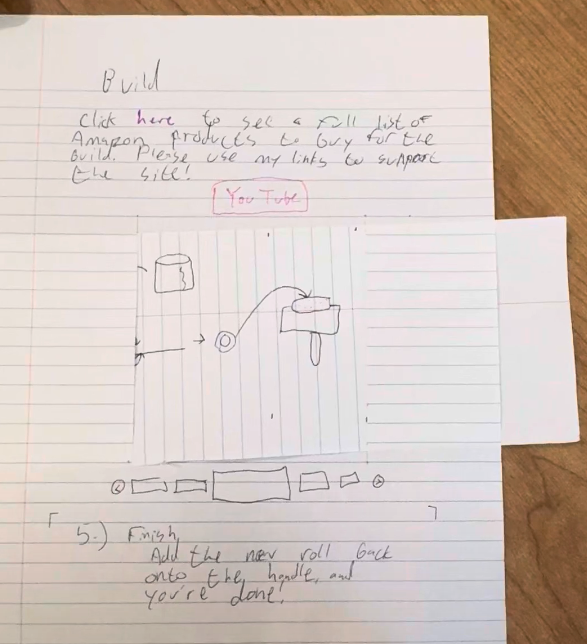 Build
Click here to see a full list of
Amazon products to buy for the
build. Please use my links to support
the site!
YouTube
5.) Finish
Add the new roll back
onto the handle, and
you're done!